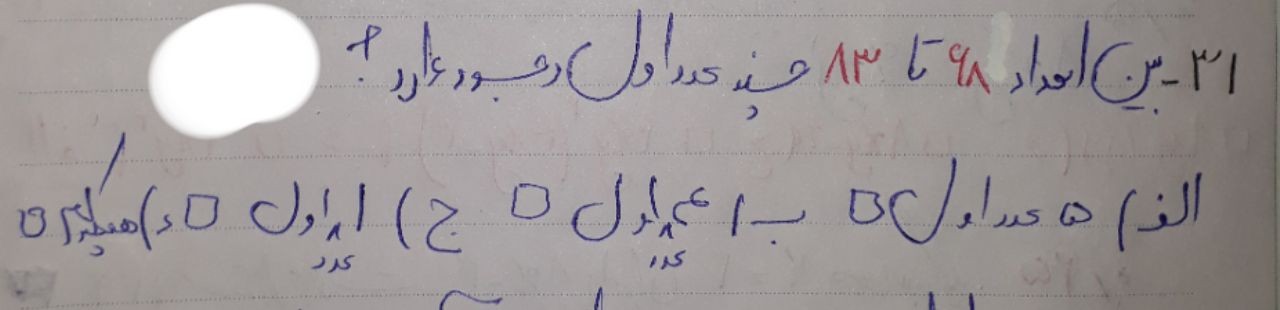 ۳۱- بین اعداد ۶۸ تا ۸۳ چند عدد اول وجود دارد؟
الف) ۵ عدد اول □ ب) ۴ عدد اول □ ج) ۱ عدد اول □ د) هیچکدام □